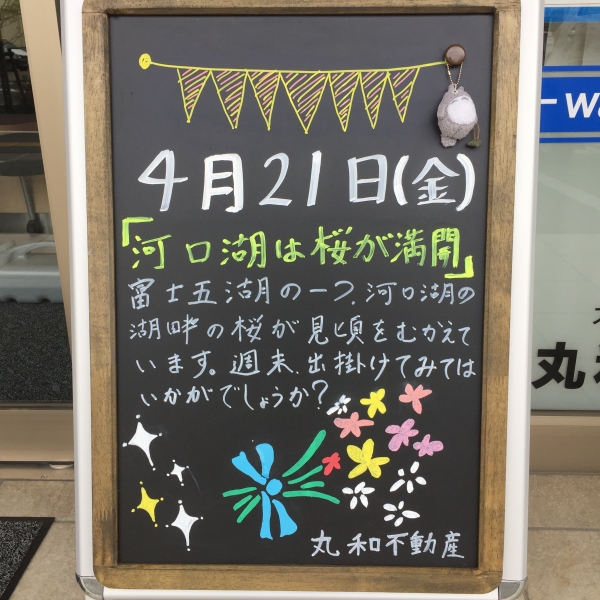 4月21日(金)
「河口湖は桜が満開」
富士五湖の一つ、河口湖の
湖畔の桜が見頃をむかえて
います。週末、出掛けてみては
いかがでしょうか?
丸和不動産
丸